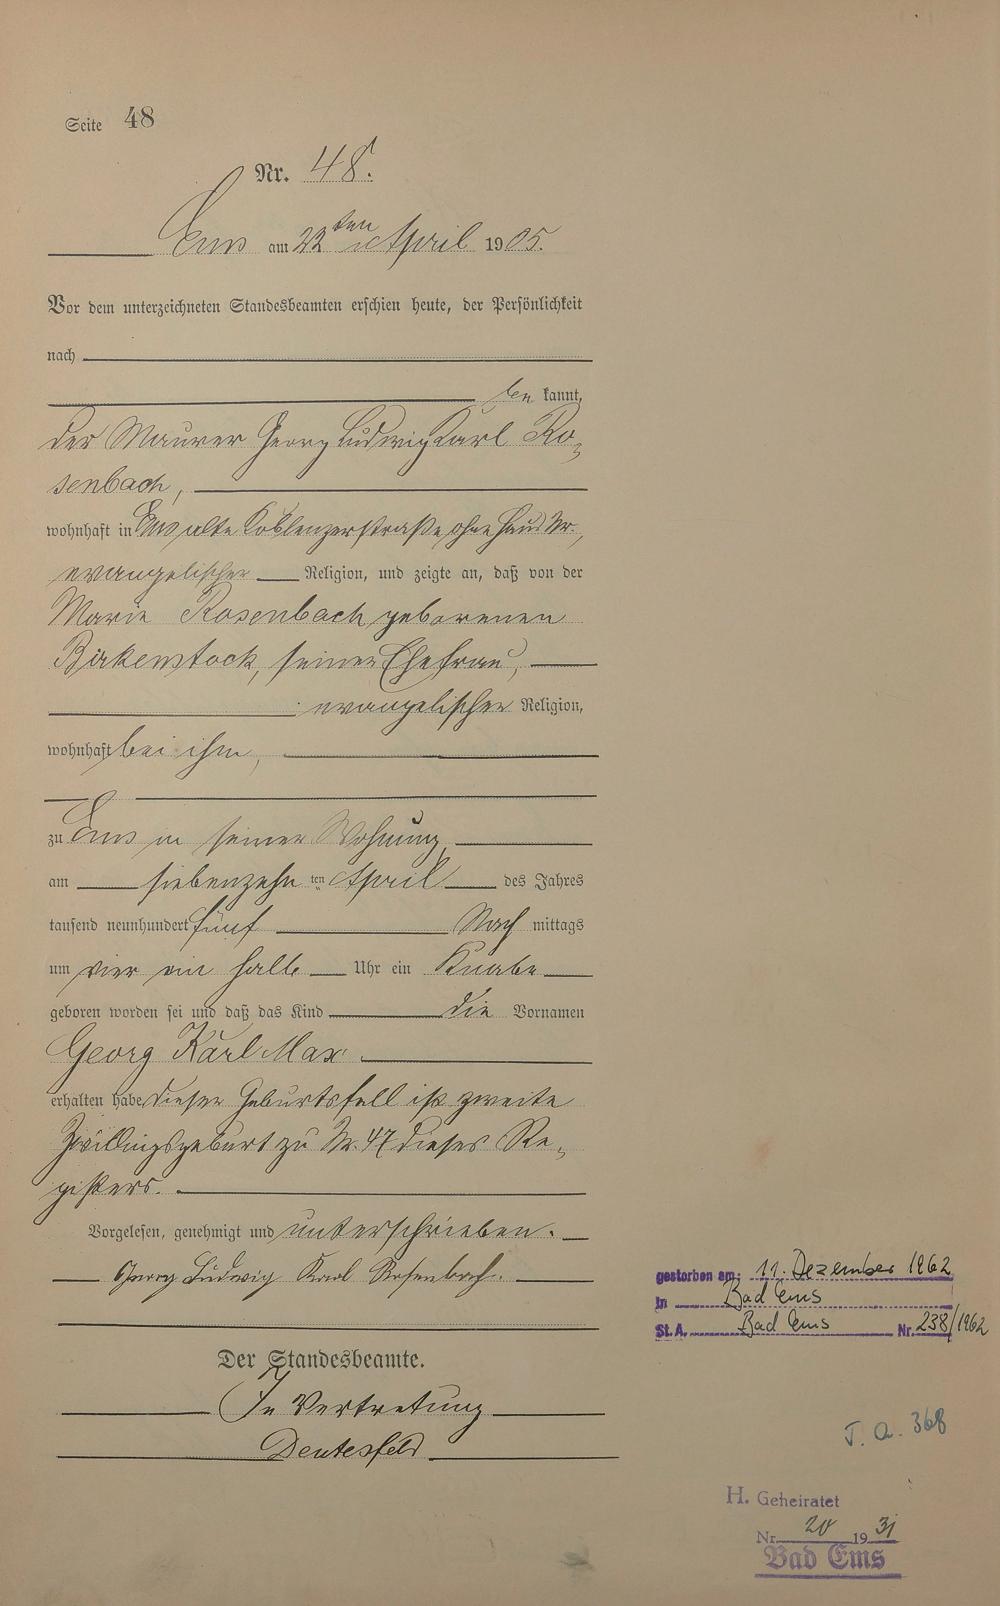 Seite 48
Nr. 48.
Ems am 22ten April 1905.
Vor dem unterzeichneten Standesbeamten erschien heute, der Persönlichkeit
nach
be kannt,
der Maurer Georg Ludwig Karl Ro-
senbach,
wohnhaft in Ems alte Koblenzerstraße ohne Haus Nr.,
evangelischer Religion, und zeigte an, daß von der
Marie Rosenbach geborenen
Birkenstock, seiner Ehefrau,
evangelischer Religion,
wohnhaft bei ihm,
zu Ems in seiner Wohnung,
am siebenzehn ten April des Jahres
tausend neunhundert fünf Nach mittags
um vier ein halb Uhr ein Knabe
geboren worden sei und daß das Kind die Vornamen
Georg Karl Max
erhalten habe. Dieser Geburtsfall ist zweite
Zwillingsgeburt zu Nr. 47 dieses Re-
gisters.
Vorgelesen, genehmigt und unterschrieben.
Georg Ludwig Karl Rosenbach.
Der Standesbeamte.
In Vertretung
Deutesfeld
gestorben am: 11. Dezember 1962
in Bad Ems
St. A. Bad Ems Nr. 238/1962
T. A. 368
H. Geheiratet
Nr. 20 1931
Bad Ems